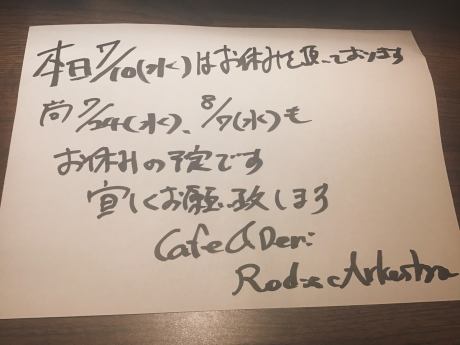 本日7/10(水)はお休みを頂いております
尚7/24(水)、8/7(水)も
お休みの予定です
宜しくお願い致します
Cafe & Deri
Arkestra